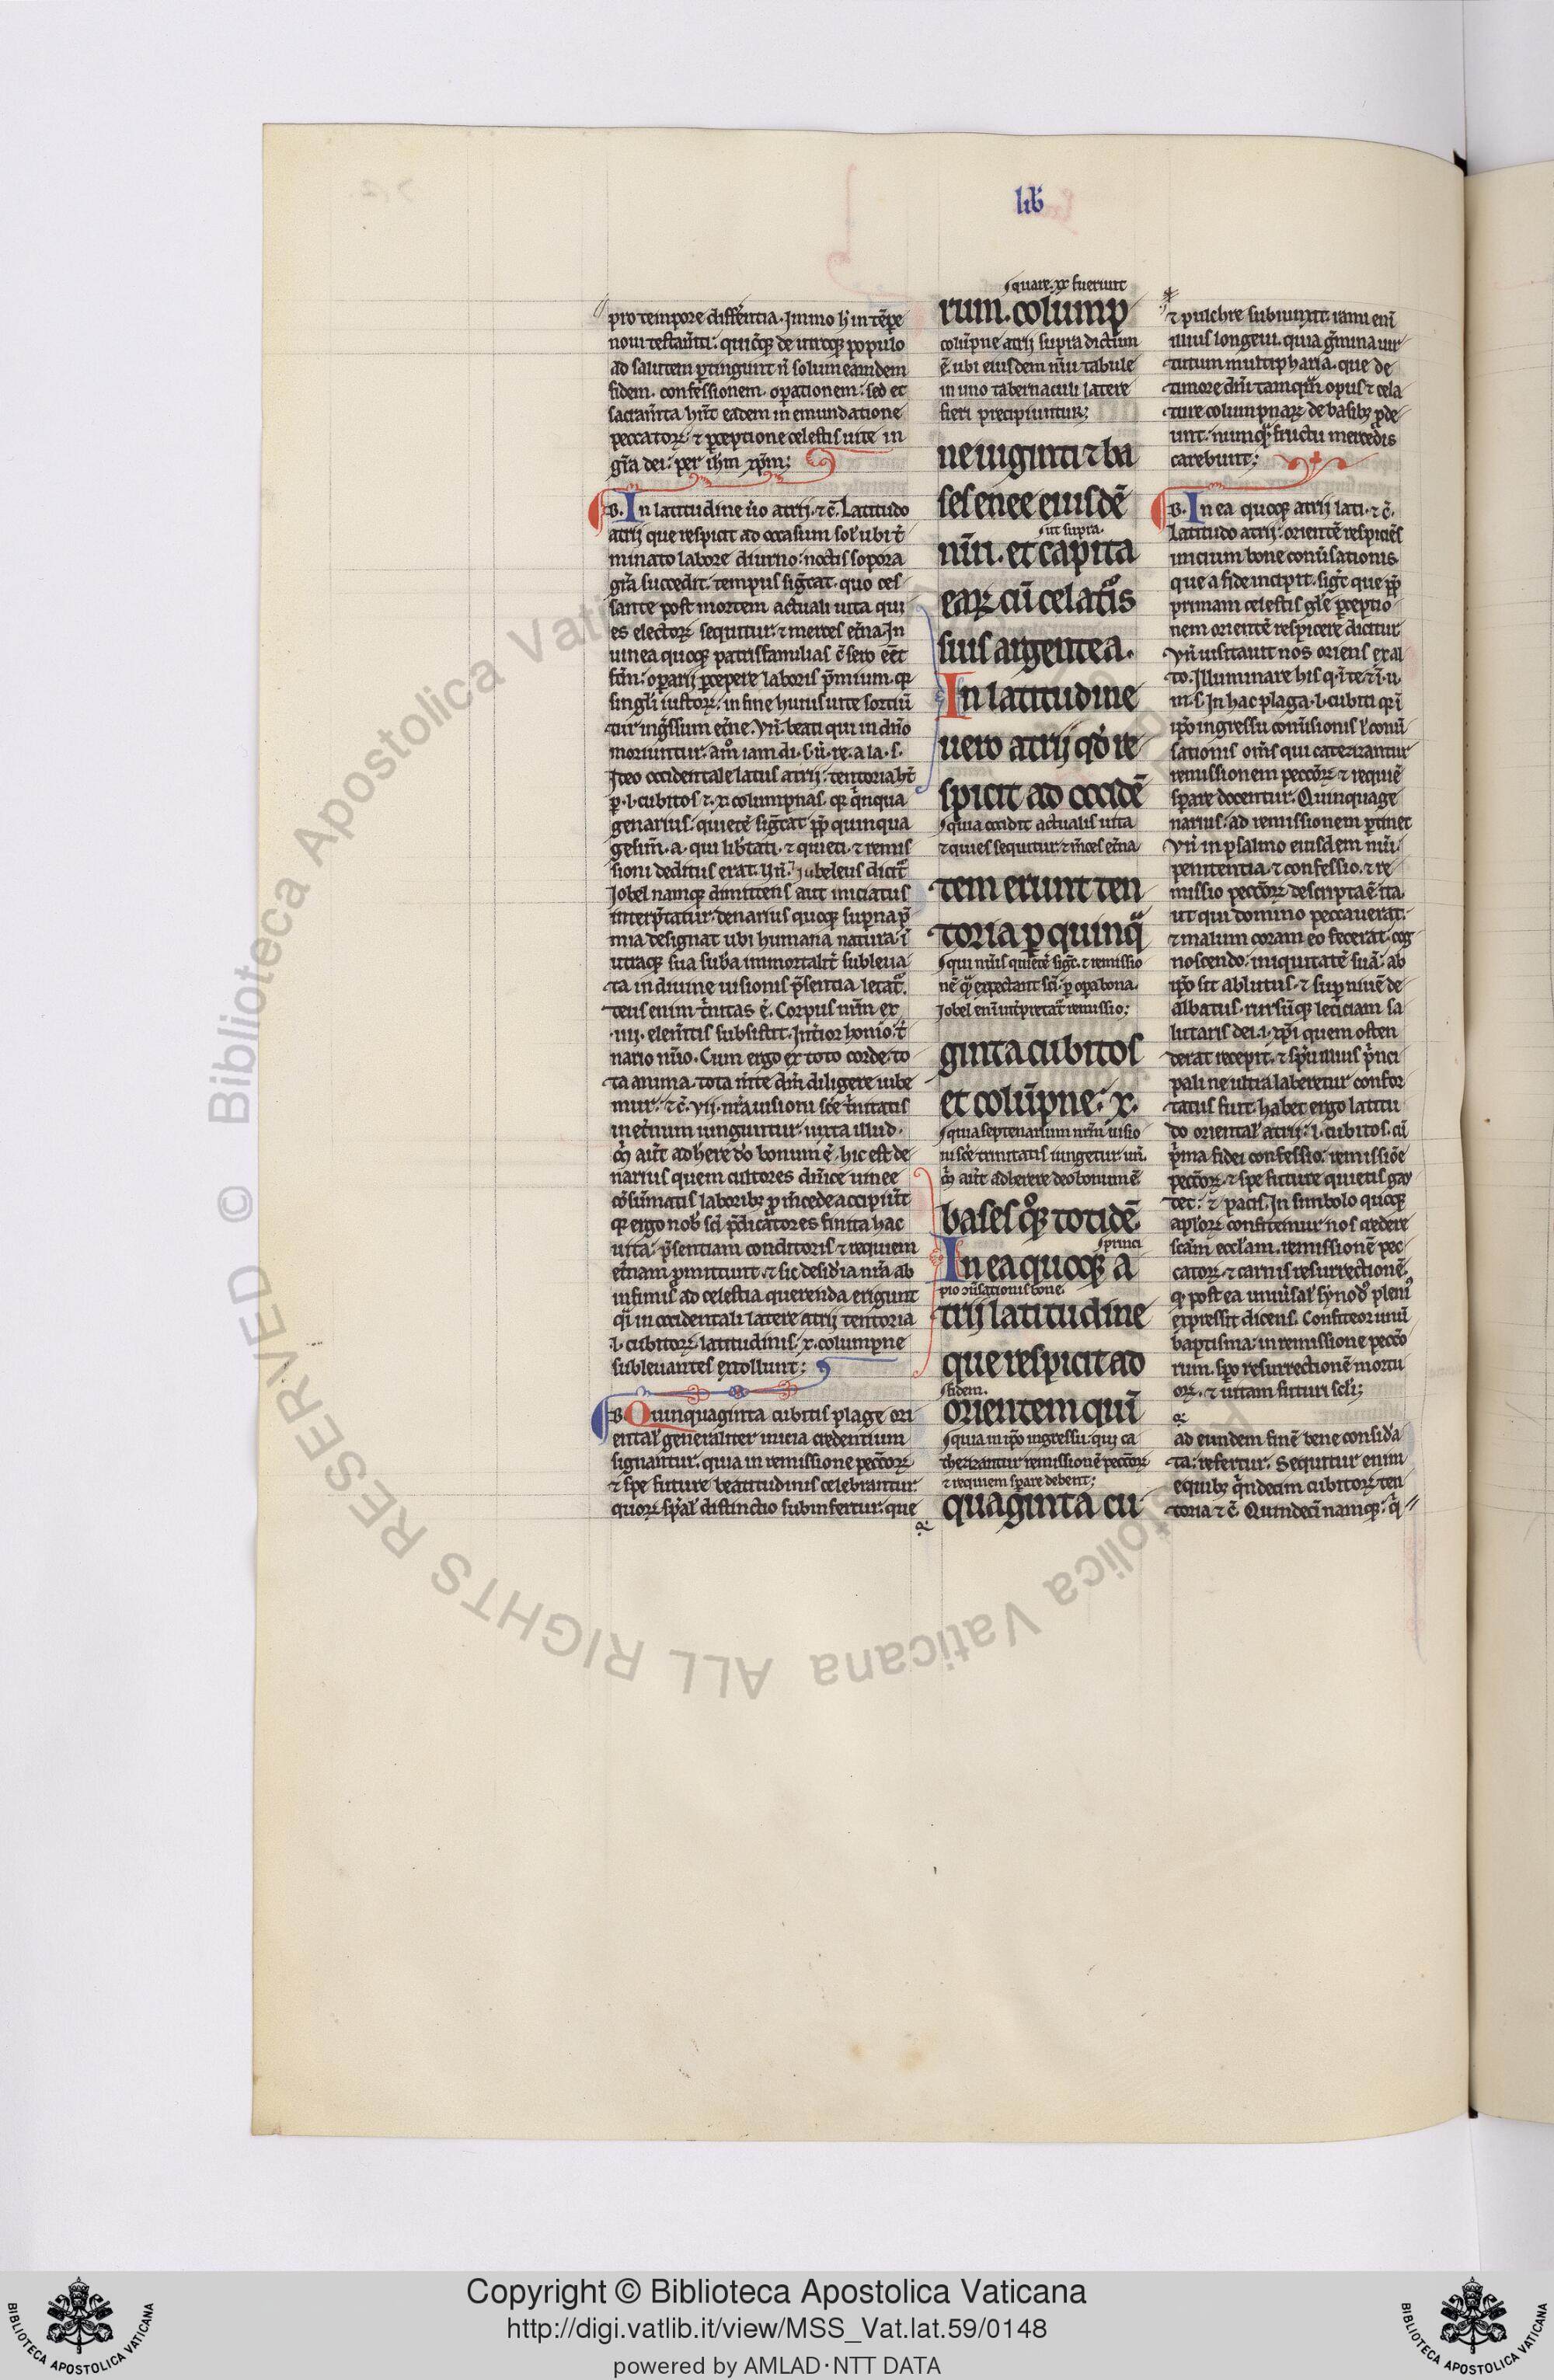 lib̄
pro tempore differentia. Immo h̄ in tēpe
noui testam̄ti: quicūq; de utroq; populo
ad salutem ꝑtingunt n̄ solum eamdem
fidem. confessionem. oꝑationem: sed et
sacram̄ta hn̄t eadem in emundatione
peccatoꝝ. ⁊ ꝑceptione celestis uite in
gr̄a dei: per ih̄m xp̄m;
B. In latitudine ūo atrij. ⁊ c̄. Latitudo
atrij que respicit ad occasum sol' ubi t̄
minato labore diurno: noctis sopora
gr̄a succedit. tempus sig̃cat. quo ces
sante post mortem actuali uita qui
es electoꝝ sequitur. ⁊ merces et̄na. In
uinea quoq; patrisfamilias
fc̄m: oꝑarij ꝑcepere laboris p̄mium. q;
singl'i iustoꝝ. in fine huius uite sortiū
tur ingr̄ssum et̄ne. Vn̄. beati qui in dn̄o
moriuntur. am̊ iam di. s. ū. re. a la. s.
Ideo occidentale latus atrij: tentoria h̄t
ꝑ. l. cubitos ⁊. x. columpnas. q; q̄nqua
genarius. quietē sig̃cat ꝓp̄ quinqua
gesim̄. a. qui lib̄tati. ⁊ quieti. ⁊ remis
sioni deditus erat. Vn̄. Iubeleus dicit᷑
Iobel namq; dimittens aut iniciatus
interp̄tatur. denarius quoq; suꝑna p̄
mia designat ubi humana natura. ī
utraq; sua sub̄a immortalit̄ subleua
ta in diuine uisionis p̄sentia letat᷑.
Deus enim t̄nitas ē. Corpus nr̄m ex
.iiij. elem̄tis subsistit. Int̄ior homo. t̄
nario nūo. Cum ergo ex toto corde. to
ta anima. tota m̄te dn̄m diligere iube
mur. ⁊ c̄. vij. nr̄a uisioni sc̄e t̄nitatis
inet̄num iunguntur. iuxta illud.
m̄ aut̄ adh̄ere dō bonum ē. hic est de
narius quem cultores dn̄ice uinee
cōsum̄atis laborib; ꝑ m̄cede accipiūt
q; ergo nob' sc̄i p̄dicatores finita hac
uita: p̄sentiam conditoris ⁊ requiem
et̄nam ꝓmittunt. ⁊ sic desideria nr̄a ab
infimis ad celestia querenda erigunt
q̄i in occidentali latere atrij tentoria
.l. cubitoꝝ. latitudinis. x. columpne
subleuantes extollunt:
B. Quinquaginta cubitis plage ori
ental' generaliter inicia credentium
signantur. quia in remissione pecc̄oꝝ
⁊ spe future beatitudinis celebrantur
quoꝝ sp̄al' distinctio subinfertur. que
quare. xx. fuerunt
rum. colump
colūpne atrij supra dictūm
ē. ubi eiusdem nūi tabule
in uno tabernaculi latere
fieri precipiuntur;
ne uiginti ⁊ ba
ses enee eiusdē
ut supra.
nūi. et capita
eaꝝ cū celat̊is
suis argentea.
In latitudine
uero atrij qd̄ re
spicit ad occidē
quia occidit actualis uita
⁊ quies sequitur. ⁊ m̄ces et̄na
tem erunt ten
toria ꝑ quinq̃
qui nūis quietē sig̃c̄. ⁊ remissio
nē q̃ expectant sc̄i. ꝑ oꝑa bona.
Iobel enī int̄pretat᷑ remissio;
ginta cubitos
et colūpne: x.
quia septenarium nr̄m uisio
ni sc̄e trinitatis iungetur. un̄.
m̄ aut̄ adherere deo bonum ē
bases q̊ꝫ totidē
princi
In ea quoq; a
pio cūsationis bone.
trij latitudine
que respicit ad
fidem.
orientem quī
quia in ip̄o ingressu. qui ca
thezizantur remissionē pecc̄oꝝ
⁊ requiem sꝑare debent;
quaginta cu
⁊ pulchre subiunxit. iam enī
illius longeui. quia g̃mina uir
tutum multiphariā. que de
timore dn̄i tamqm̄ opus ⁊ cela
ture columpnaꝝ de basib; ꝓde
unt. numq̃ fructu mercedis
carebunt;
B. In ea quoq; atrij lati. ⁊ c̄.
Latitudo atrij: orientē respiciēs
inicium bone conūsationis
que a fide incipit. sig̃c̄. que ꝓp̄
primam celestis gl'e ꝑceptio
nem orientē respicere dicitur.
Vn̄ uisitauit nos oriens ex al
to. Illuminare his q. ī te. ⁊ ī. u.
m. s. In hac plaga. l. cubiti q; ī
ip̄o ingressu conūsionis l' conū
sationis om̄s qui catezizantur
remissionem pecc̄oꝝ ⁊ requiē
sꝑare docentur. Quinquage
narius: ad remissionem ꝑtinet
Vn̄ in psalmo eiusdem nūi.
penitentia. ⁊ confessio. ⁊ re
missio pecc̄oꝝ descripta ē. ita.
ut qui domino peccauerat.
⁊ malum coram eo fecerat. cog
noscendo. iniquitatē suā: ab
ip̄o sit ablutus. ⁊ suꝑ niuē de
albatus. rursūq; leticiam sa
lutaris dei. i. xp̄i quem osten
derat recepit. ⁊ sp̄u illius p̄nci
pali ne ultra laberetur confor
tatus fuit. habet ergo latitu
do oriental' atrij: l. cubitos. cū
p̄ma fidei confessio: remissiōe
pecc̄oꝝ. ⁊ spe future quietis gau
det: ⁊ pacis. In simbolo quoq;
apl'oꝝ confitemur nos credere
sc̄am eccl'am. remissionē pec
catoꝝ. ⁊ carnis resurrectionē.
q; post ea uniūsal' synod' pleni'
expressit dicens. Confiteor unū
baptisma: in remissione pecc̄o
rum. sꝑo resurrectionē mortu
oꝝ. ⁊ uitam futuri sc̄l'i;
ad eundem finē bene consid̄a
ta: refertur. Sequitur enim
equib; q̄ndecim cubitoꝝ ten
toria ⁊ c̄. Quindecī namq;. q̄
Copyright © Biblioteca Apostolica Vaticana
http://digi.vatlib.it/view/MSS_Vat.lat.59/0148
powered by AMLAD·NTT DATA
BIBLIOTECA APOSTOLICA VATICANA
BIBLIOTECA APOSTOLICA VATICANA
© Biblioteca Apostolica Vaticana ALL RIGHTS RESERVED